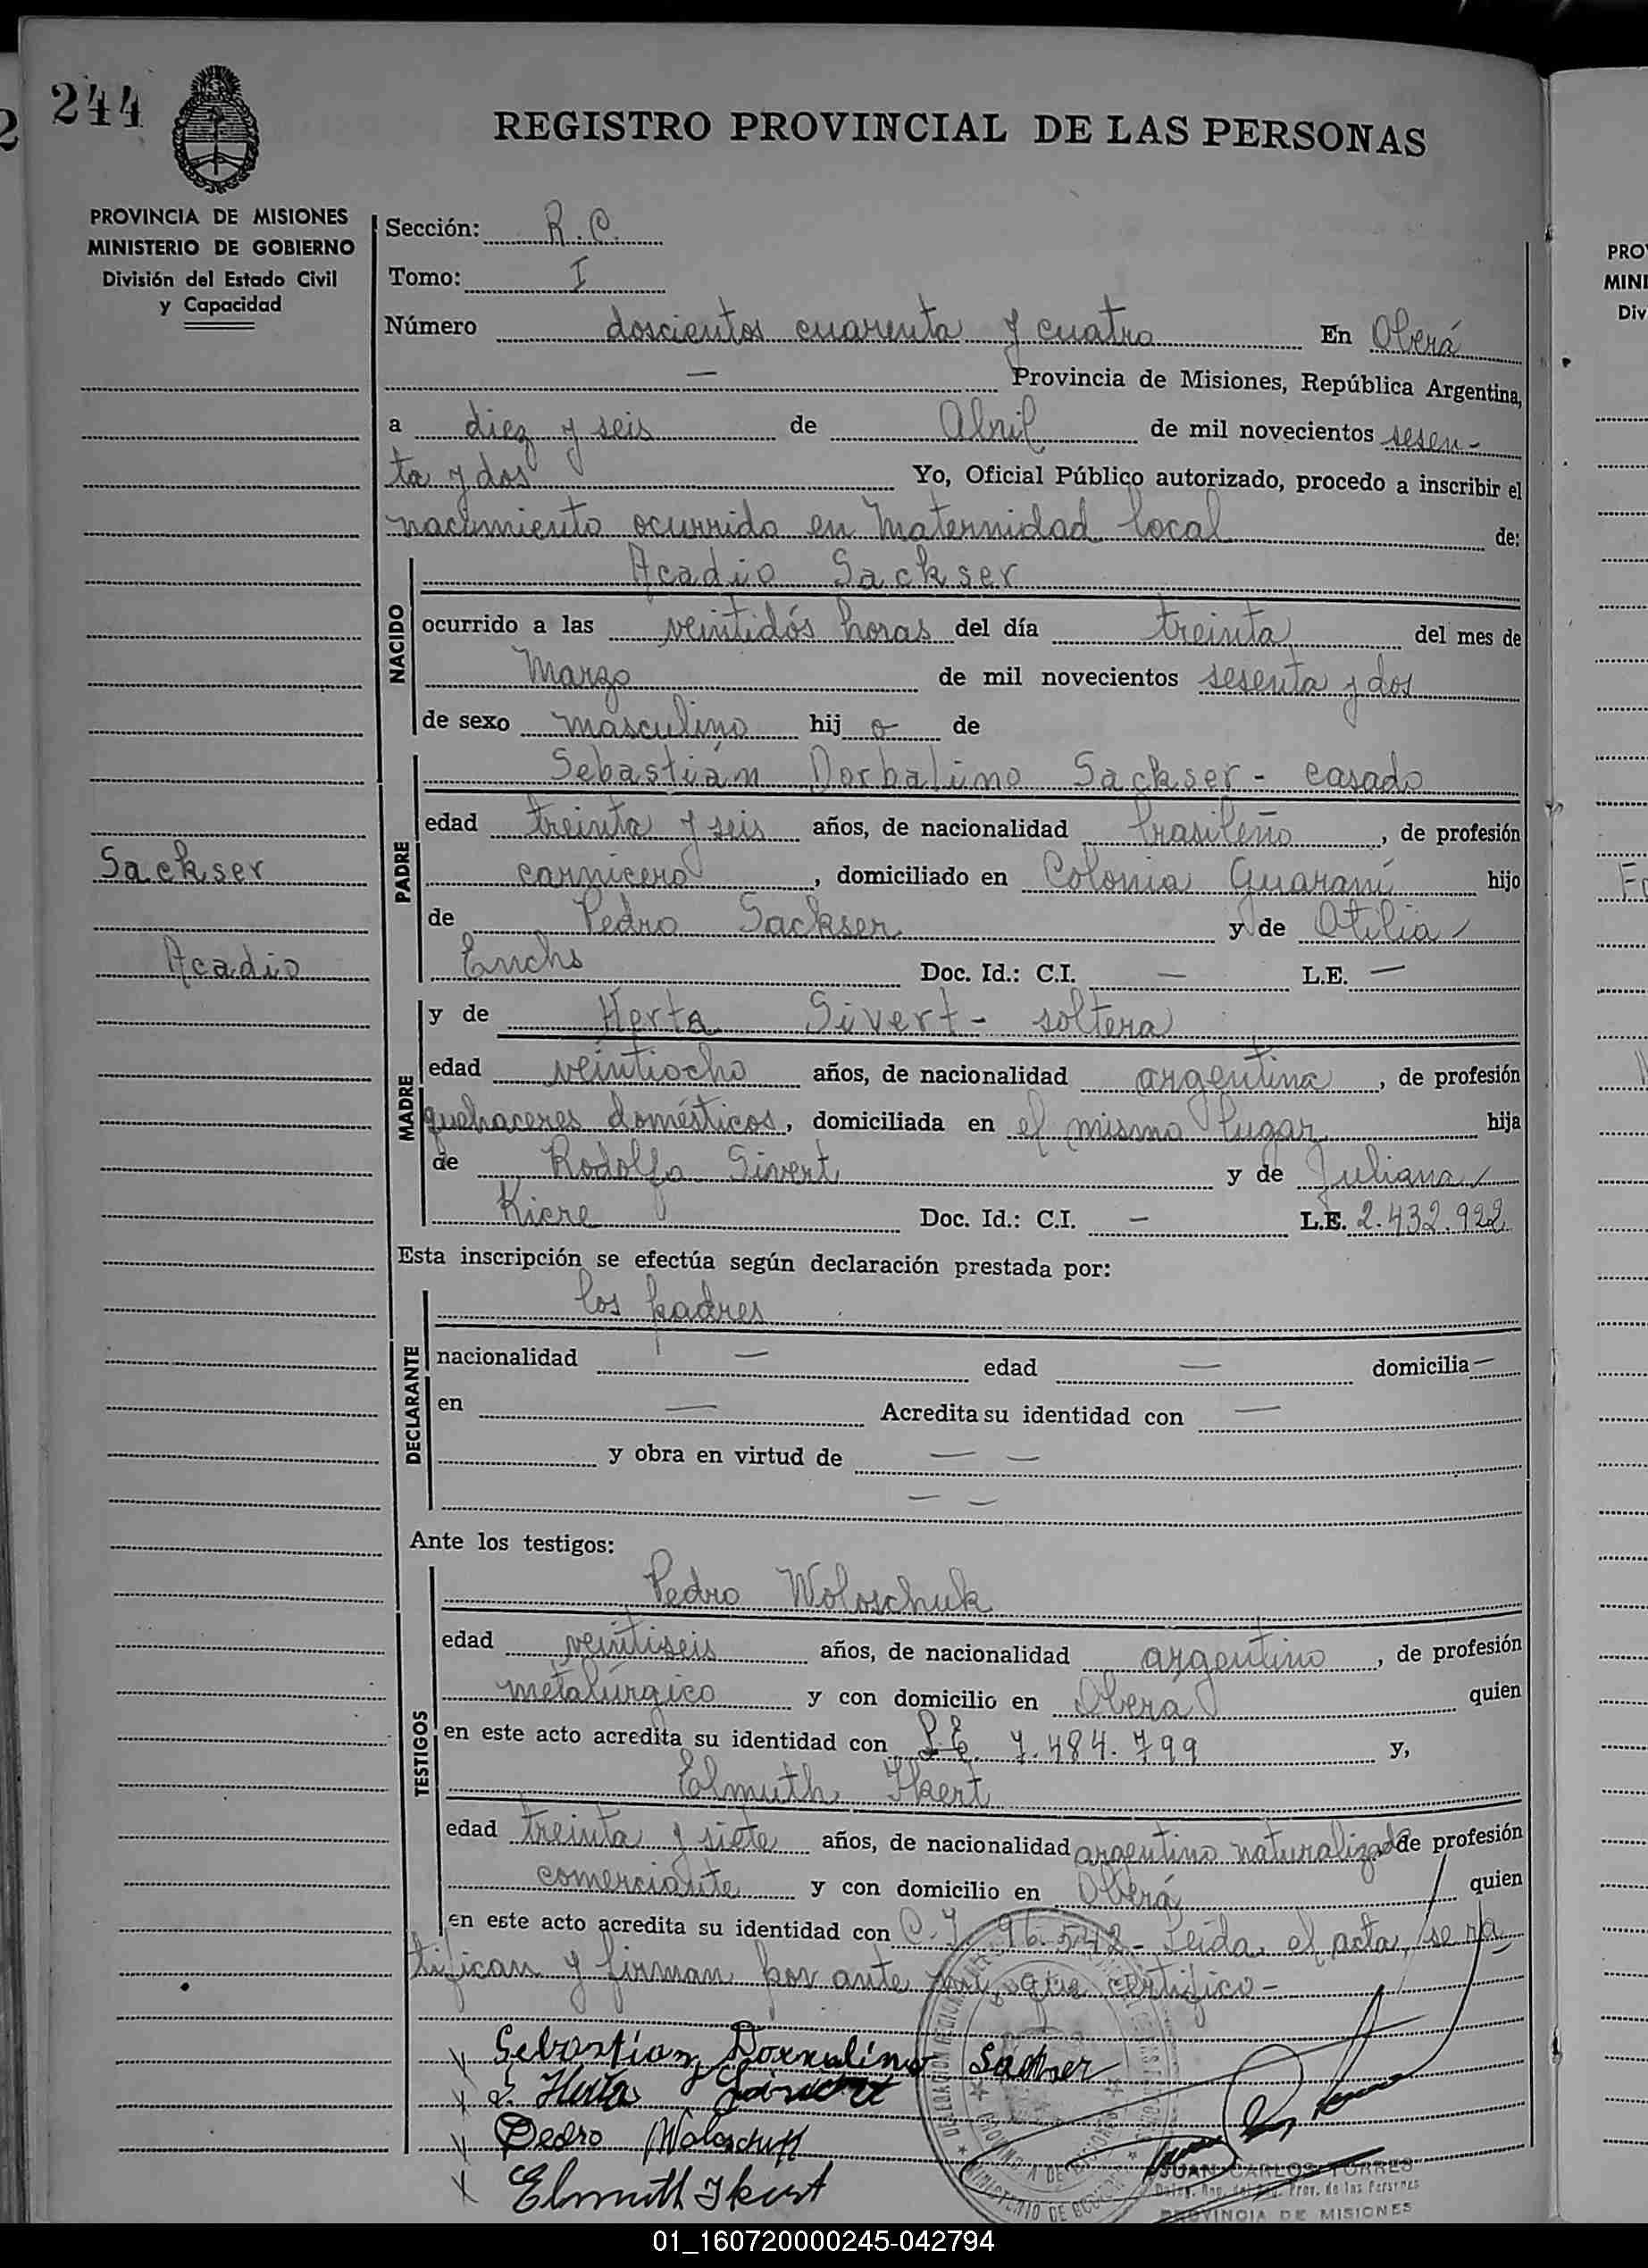 244
REGISTRO PROVINCIAL DE LAS PERSONAS
PROVINCIA DE MISIONES
MINISTERIO DE GOBIERNO
División del Estado Civil
y Capacidad
Sección: R. C.
Tomo: I
Número doscientos cuarenta y cuatro En Oberá
— Provincia de Misiones, República Argentina,
a diez y seis de Abril de mil novecientos sesen-
ta y dos Yo, Oficial Público autorizado, procedo a inscribir el
nacimiento ocurrido en Maternidad local de:
NACIDO
Acadio Sackser
ocurrido a las veintidós horas del día treinta del mes de
Marzo de mil novecientos sesenta y dos
de sexo masculino hijo de
PADRE
Sebastián Dorbalino Sackser - casado
edad treinta y seis años, de nacionalidad brasileño, de profesión
Sackser
carnicero, domiciliado en Colonia Guaraní hijo
de Pedro Sackser y de Otilia
Acadio
Enchs Doc. Id.: C.I. — L.E. —
MADRE
y de Herta Sivert - soltera
edad veintiocho años, de nacionalidad argentina, de profesión
quehaceres domésticos, domiciliada en el mismo lugar hija
de Rodolfo Sivert y de Juliana
Kicre Doc. Id.: C.I. — L.E. 2.432.922
Esta inscripción se efectúa según declaración prestada por:
DECLARANTE
los padres
nacionalidad — edad — domicilia —
en — Acredita su identidad con —
y obra en virtud de — —
— —
Ante los testigos:
TESTIGOS
Pedro Woloschuk
edad veintiseis años, de nacionalidad argentino, de profesión
metalúrgico y con domicilio en Oberá quien
en este acto acredita su identidad con L.E. 7.484.799 y,
Elmuth Ikert
edad treinta y siete años, de nacionalidad argentino naturalizado de profesión
comerciante y con domicilio en Oberá quien
en este acto acredita su identidad con C.I. 96.542 - Leída el acta, se ra
tifican y firman por ante mí, que certifico -
Sebastian Dorvalino Sackser
Herta Sivert
Pedro Woloschuk
Elmuth Ikert
JUAN CARLOS TORRES
Prov. de las Personas
PROVINCIA DE MISIONES
PRO
MINI
Div
01_160720000245-042794